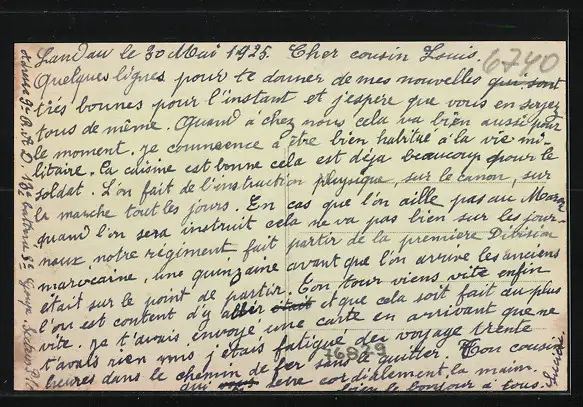 Landau le 30 Mai 1925. Cher cousin Louis.
6740
Quelques lignes pour te donner de mes nouvelles qui sont
très bonnes pour l'instant et j'espère que vous en serjez
tous de même. Quand à chez nous cela va bien aussi pour
le moment. je commence à être bien habitué à la vie mi-
litaire. La cuisine est bonne cela est déja beaucoup pour le
soldat. L'on fait de l'instruction physique, sur le canon, sur
la marche tout les jours. En cas que l'on aille pas au Maroc
quand l'on sera instruit cela ne va pas bien sur les jour-
naux, notre régiment fait partir de la première Division
marocaine, une quinzaine avant que l'on arrive les anciens
était sur le point de partir. Ton tour viens vite enfin
l'on est content d'y aller était et que cela soit fait au plus
vite. Je t'avais envoyé une carte en arrivant que ne
t'avais rien mis j'étais fatigué des voyage trente
76849
heures dans le chemin de fer sans le quitter. Ton cousin
qui vous serre cordialement la main.
le bonjour à tous.